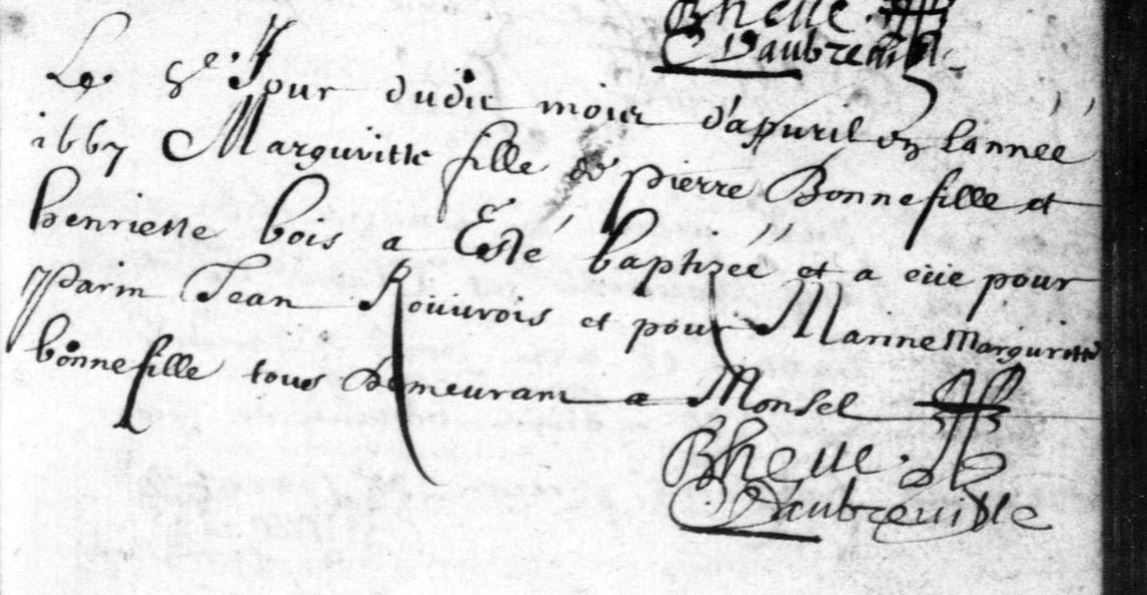 Bheue.
Daubreuille
Le 9e. Jour dudit mois d'apuril en lannéé
1667 Marguritte fille de pierre Bonnefille et
henriette bois a Esté baptizéé et a eüe pour
parin Jean Rouurois et pour Marine Marguritte
bonnefille tous demeurant a Monsel
Bheue.
Daubreuille